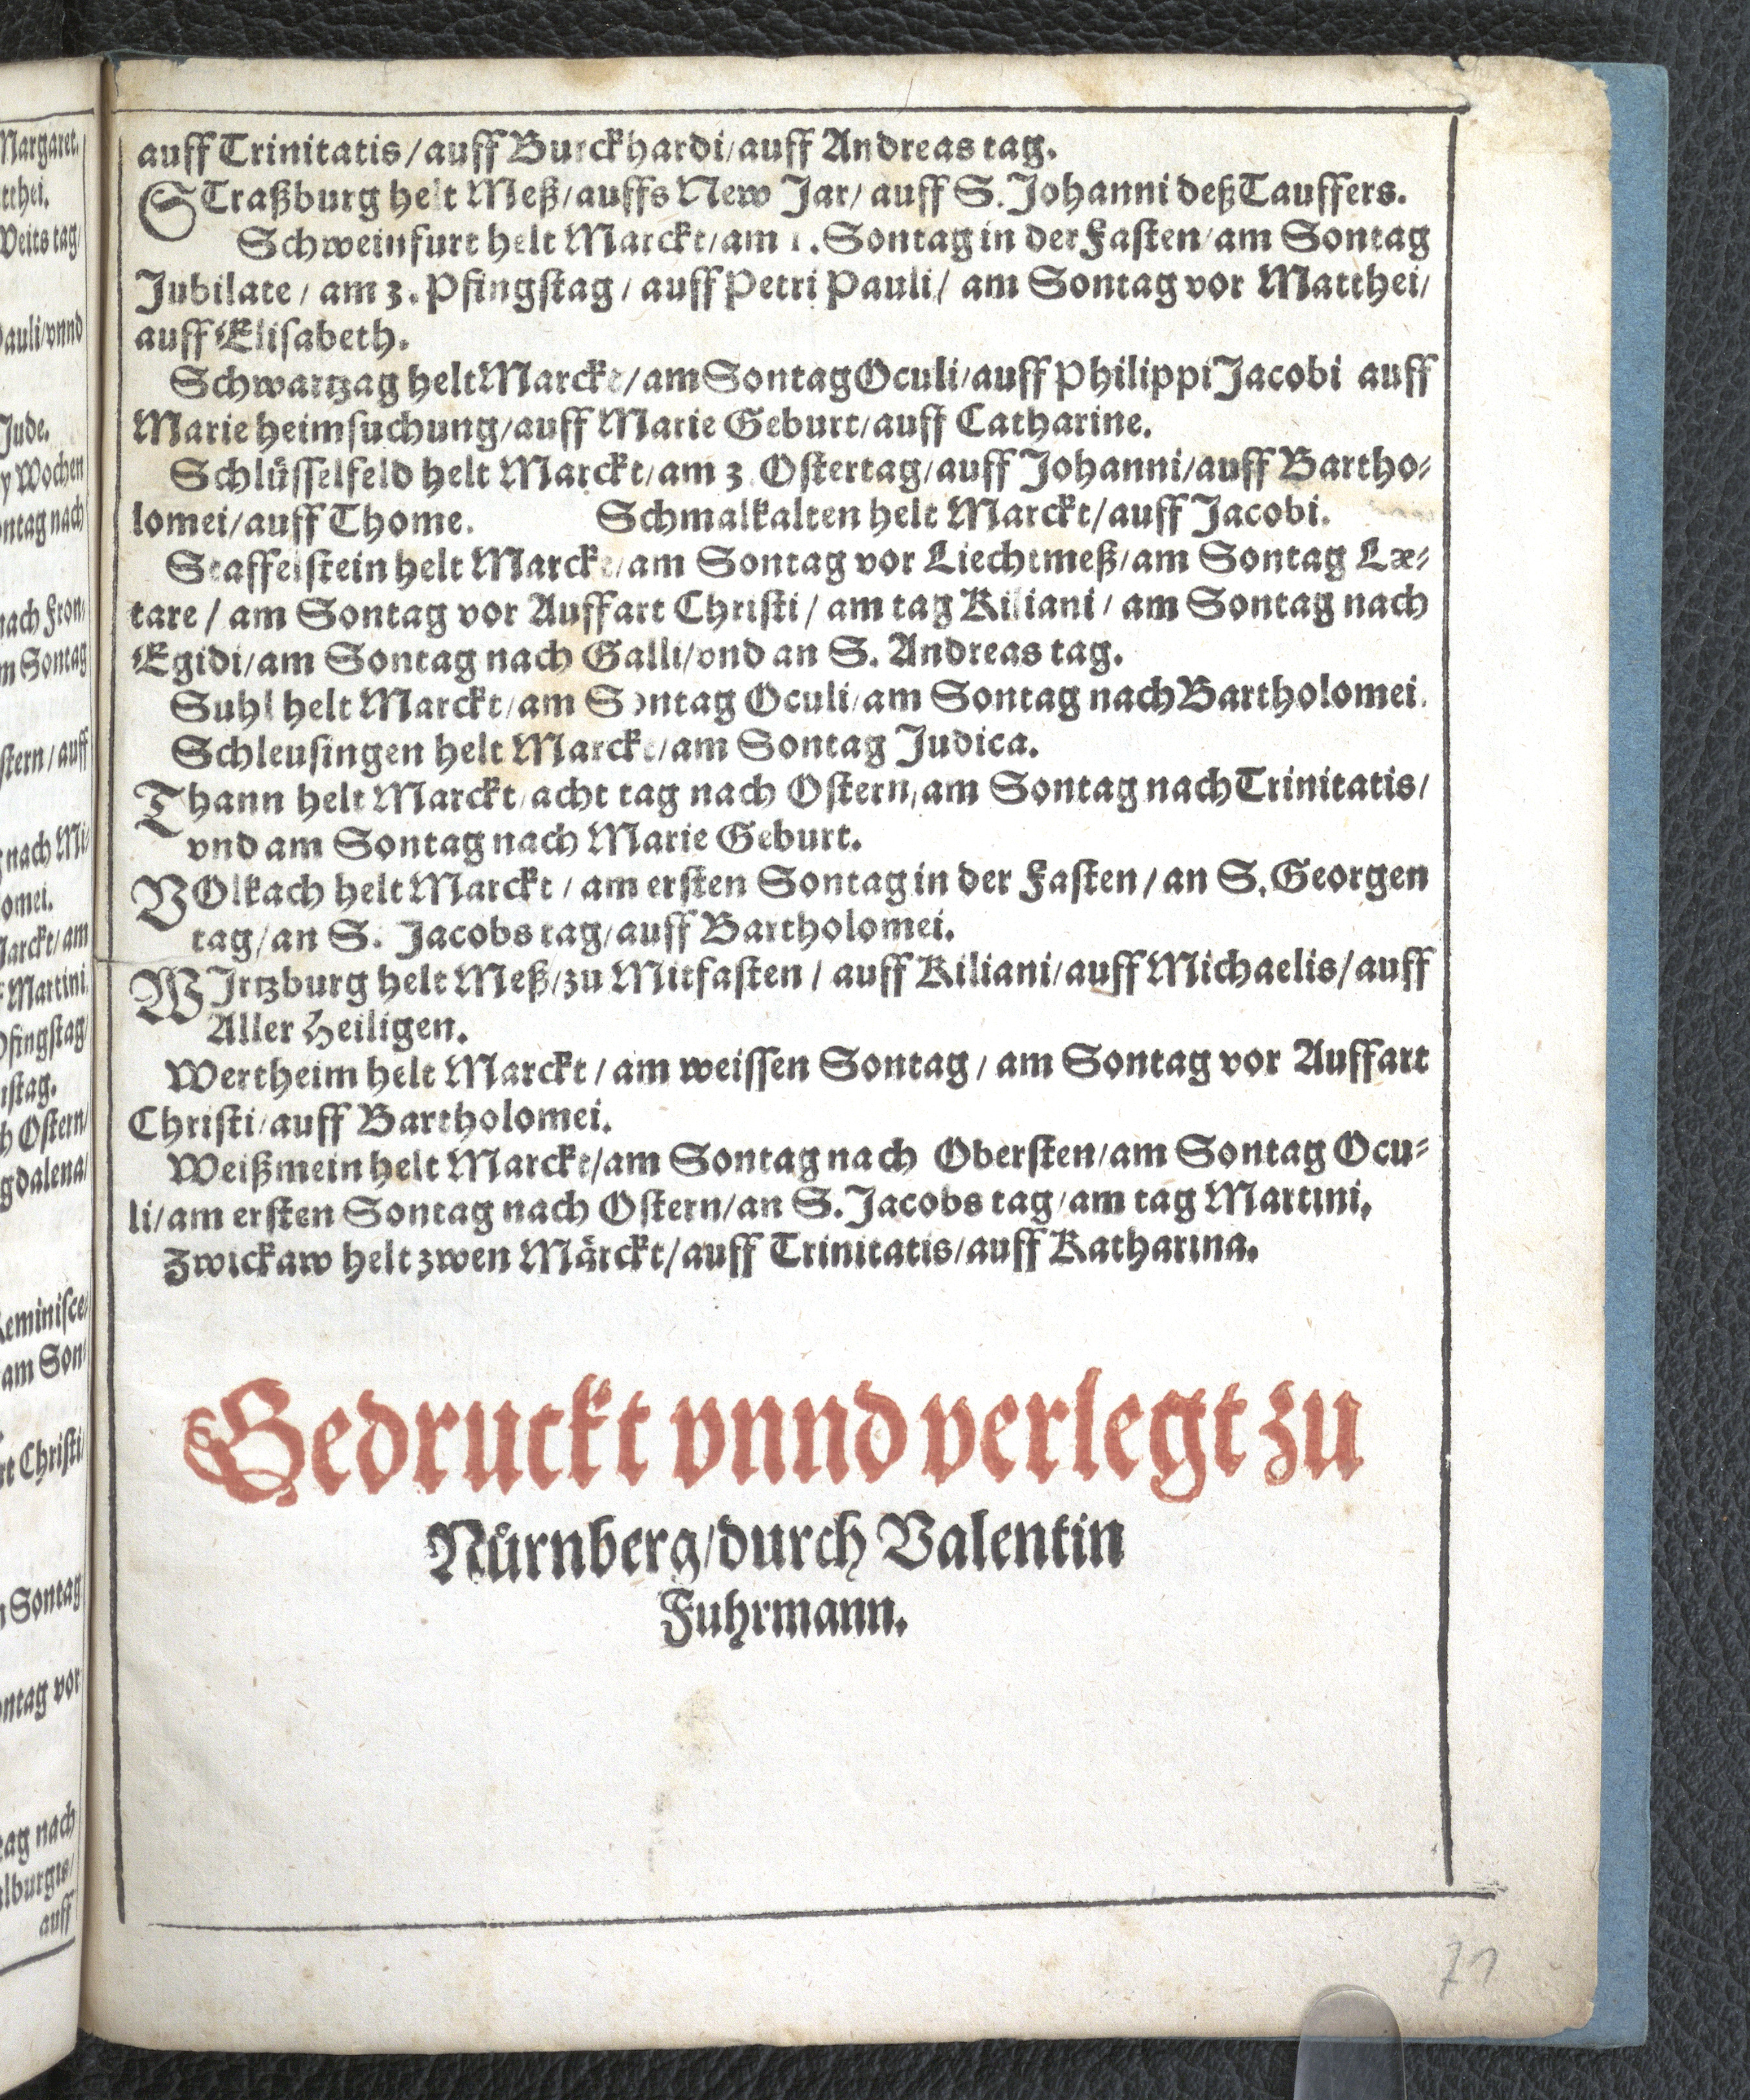 auff Trinitatis/auff Burckhardi/auff Andreas tag.
STraßburg helt Meß/auffs New Jar/ auff S. Johanni deß Tauffers.
Schweinfurt helt Marckt/am 1. Sontag in der Fasten/am Sontag
Jubilate / am 3. Pfingstag / auff Petri Pauli/ am Sontag vor Matthei/
auff Elisabeth.
Schwartzag helt Marckt/am Sontag Oculi/auff Philippi Jacobi auff
Marie heimsuchung/auff Marie Geburt/auff Catharine.
Schlüsselfeld helt Marckt/am 3. Ostertag/auff Johanni/auff Bartho-
lomei/auff Thome. Schmalkalten helt Marckt/auff Jacobi.
Staffelstein helt Marckt/am Sontag vor Liechtmeß/am Sontag Læ-
tare / am Sontag vor Auffart Christi / am tag Kiliani / am Sontag nach
Egidi/am Sontag nach Galli/vnd an S. Andreas tag.
Suhl helt Marckt/am Sontag Oculi/am Sontag nach Bartholomei.
Schleusingen helt Marckt/am Sontag Judica.
Thann helt Marckt/acht tag nach Ostern/am Sontag nach Trinitatis/
vnd am Sontag nach Marie Geburt.
VOlkach helt Marckt / am ersten Sontag in der Fasten / an S. Georgen
tag/an S. Jacobs tag/auff Bartholomei.
WJrtzburg helt Meß/zu Mitfasten / auff Kiliani/auff Michaelis/auff
Aller Heiligen.
Wertheim helt Marckt / am weissen Sontag / am Sontag vor Auffart
Christi/auff Bartholomei.
Weißmein helt Marckt/am Sontag nach Obersten/am Sontag Ocu-
li/am ersten Sontag nach Ostern/an S. Jacobs tag/am tag Martini,
Zwickaw helt zwen Märckt/auff Trinitatis/auff Katharina.
Gedruckt vnnd verlegt zu
Nürnberg/durch Valentin
Fuhrmann.
71